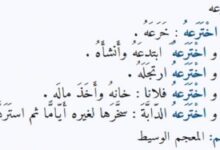 عه
اخْتَرَعهُ : خَرَعَهُ .
و اخْتَرَعهُ ابتدعَه وأَنشأَه .
و اخْتَرَعهُ ارتجَلَه .
و اخْتَرَعهُ فلانا : خانهُ وأَخَذَ مالَه .
و اخْتَرَعهُ الدَّابَّةَ : سخَّرَها لغيره أَيَّامًا ثم استَرَدَّ
م: المعجم الوسيط